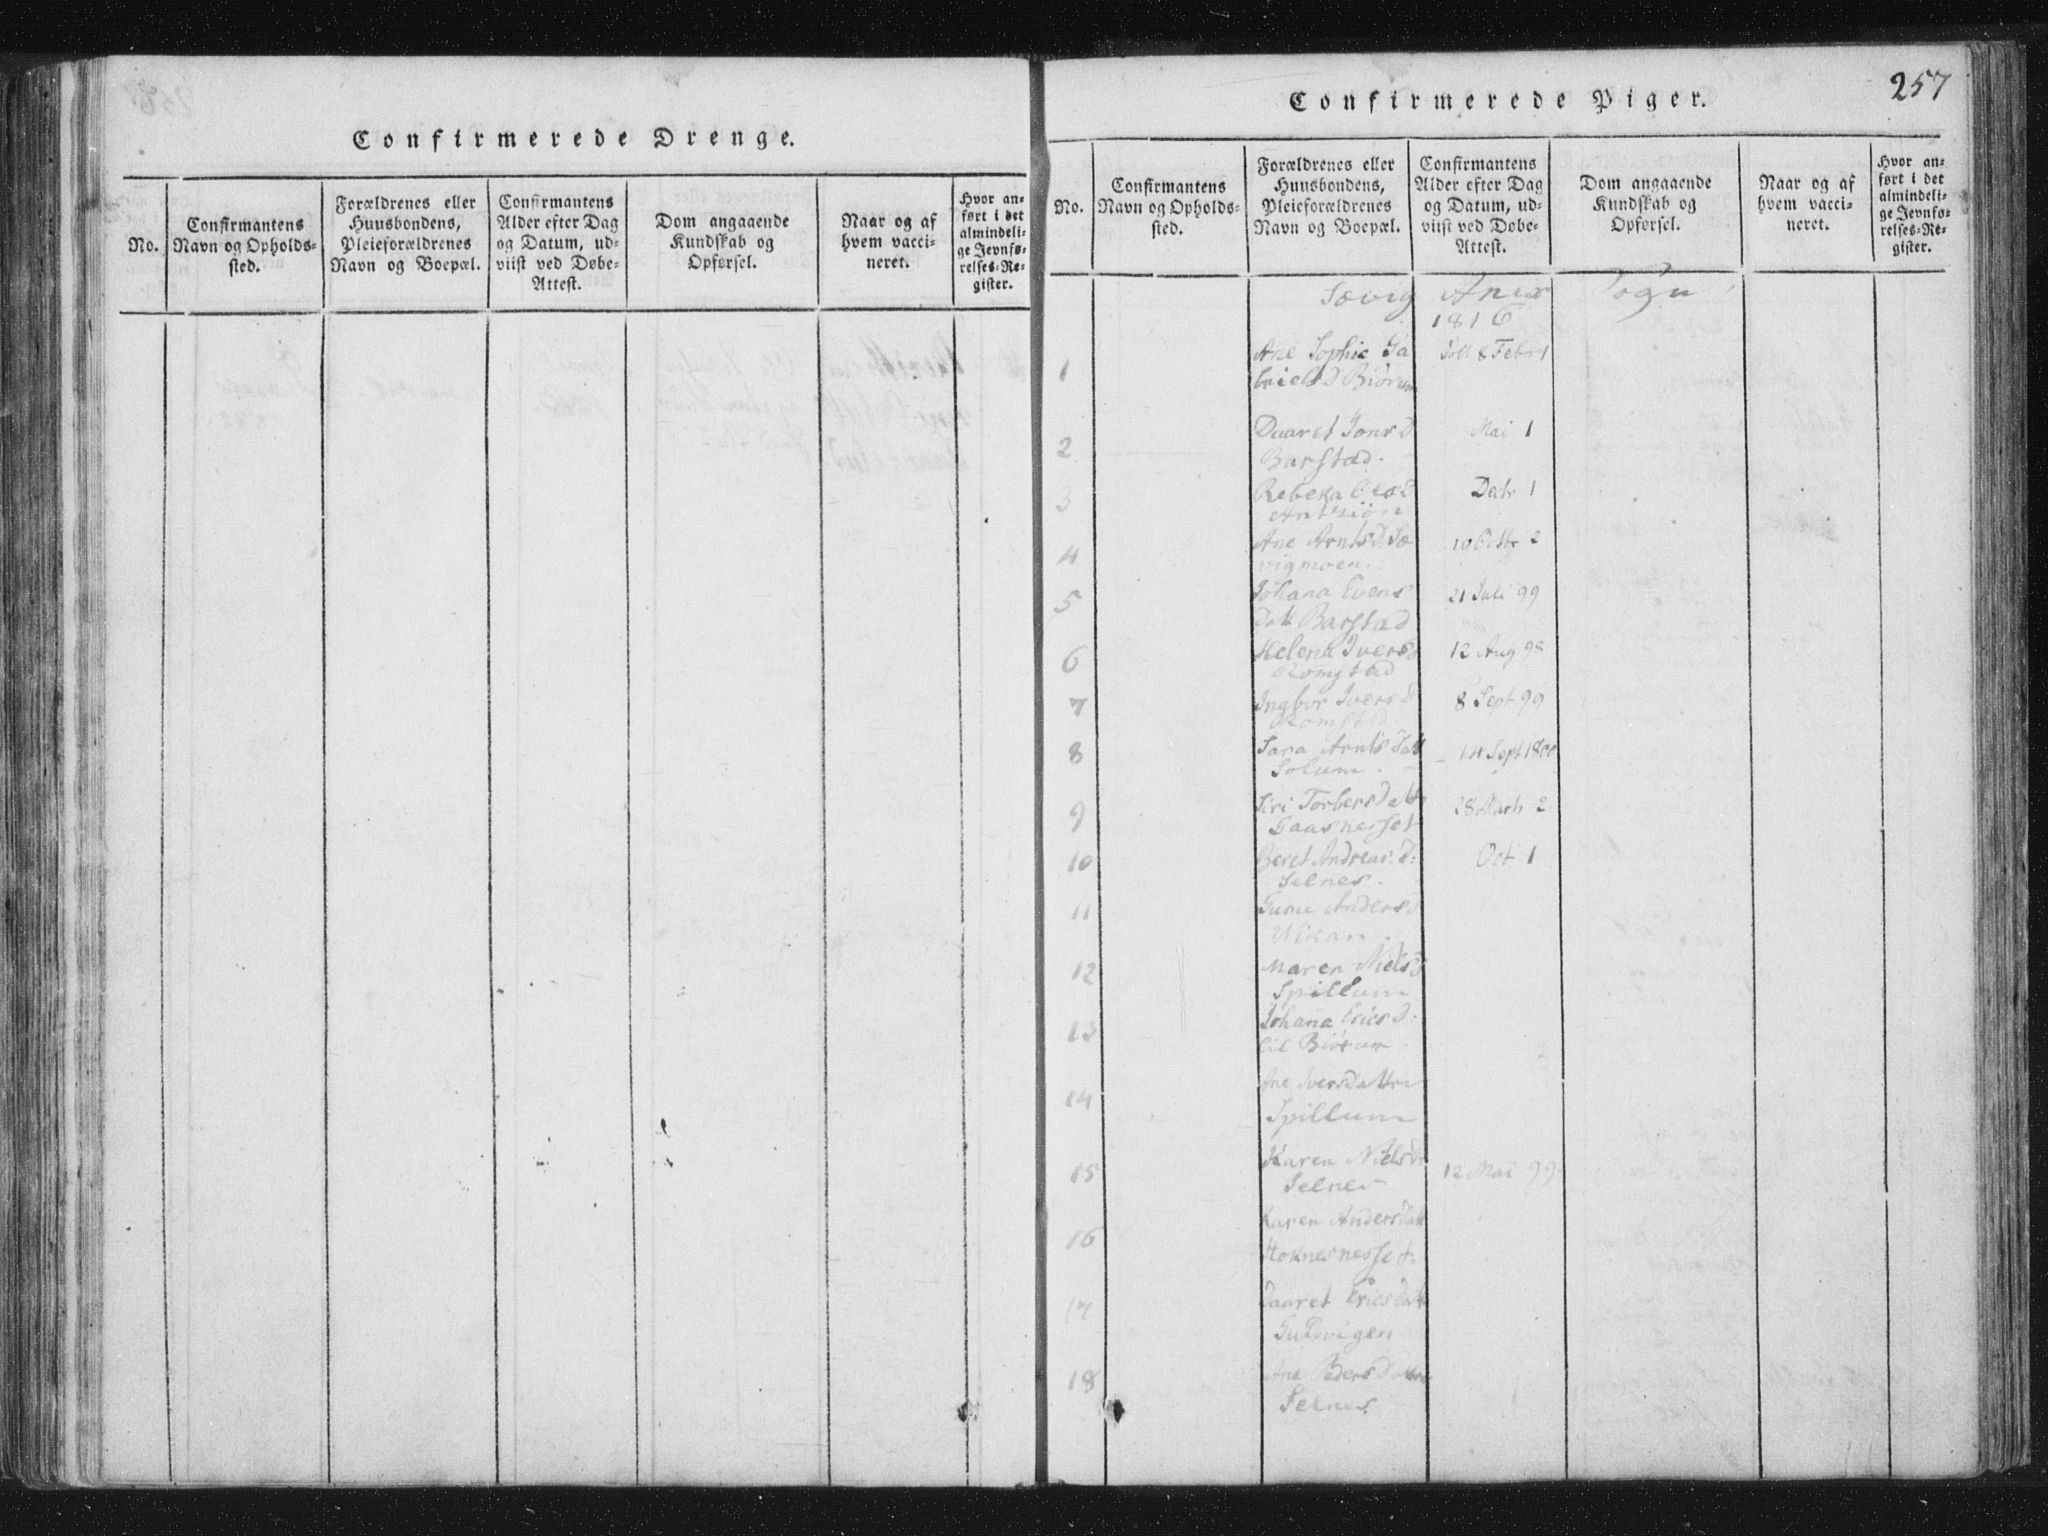 Confirmerede Drenge.
No.
Confirmantens
Navn og Opholds-
sted.
Forældrenes eller
Huusbondens,
Pleieforældrenes
Navn og Boepæl.
Confirmantens
Alder efter Dag
og Datum, ud-
viist ved Døbe-
Attest.
Dom angaaende
Kundskab og
Opførsel.
Naar og af
hvem vacci-
neret.
Hvor an-
ført i det
almindeli-
ge Jevnfø-
relses-Re-
gister.
257
Confirmerede Piger.
No.
Confirmantens
Navn og Opholds-
sted.
Forældrenes eller
Huusbondens,
Pleieforældrenes
Navn og Boepæl.
Confirmantens
Alder efter Dag
og Datum, ud-
viist ved Døbe-
Attest.
Dom angaaende
Kundskab og
Opførsel.
Naar og af
hvem vacci-
neret.
Hvor an-
ført i det
almindeli-
ge Jevnfø-
relses-Re-
gister.
Sævig Anex Sogn
1816
1 Ane Sophie Ga 8 Febr 1
brielsD Biørum
2 Daaret JonsD Mai 1
Barstad.
3 Rebeka Decbr 1
4 Ane ArntsD. Sæ 10 Octbr 2
vigmoen.
5 Johana Evens 21 Juli 99
Datt Barstad
6 Helena IversD 12 Aug 98
Romstad
7 Ingbor IversD 8 Sept 99
Romstad
8 Sara Arnts Datt 14 Sept 1800
Solum.
9 Siri TorbersDatt 28 Marts 2
Gaasnesset
10 Beret Andreas D: Oct 1
Selnes.
11 AndersD
Wikan.
12 Maren NielsD
Spillum
13 Johana EricsD:
lil Biørum.
14 Ane IversDattr
Spillum
15 Karen NielsD 12 Mai 99
Selnes
16 Karen AndersDatt
Hoknesnesset.
17 Daaret EricsDatt
Gulsvigen
18 Ane PedersDattr
Selnes.